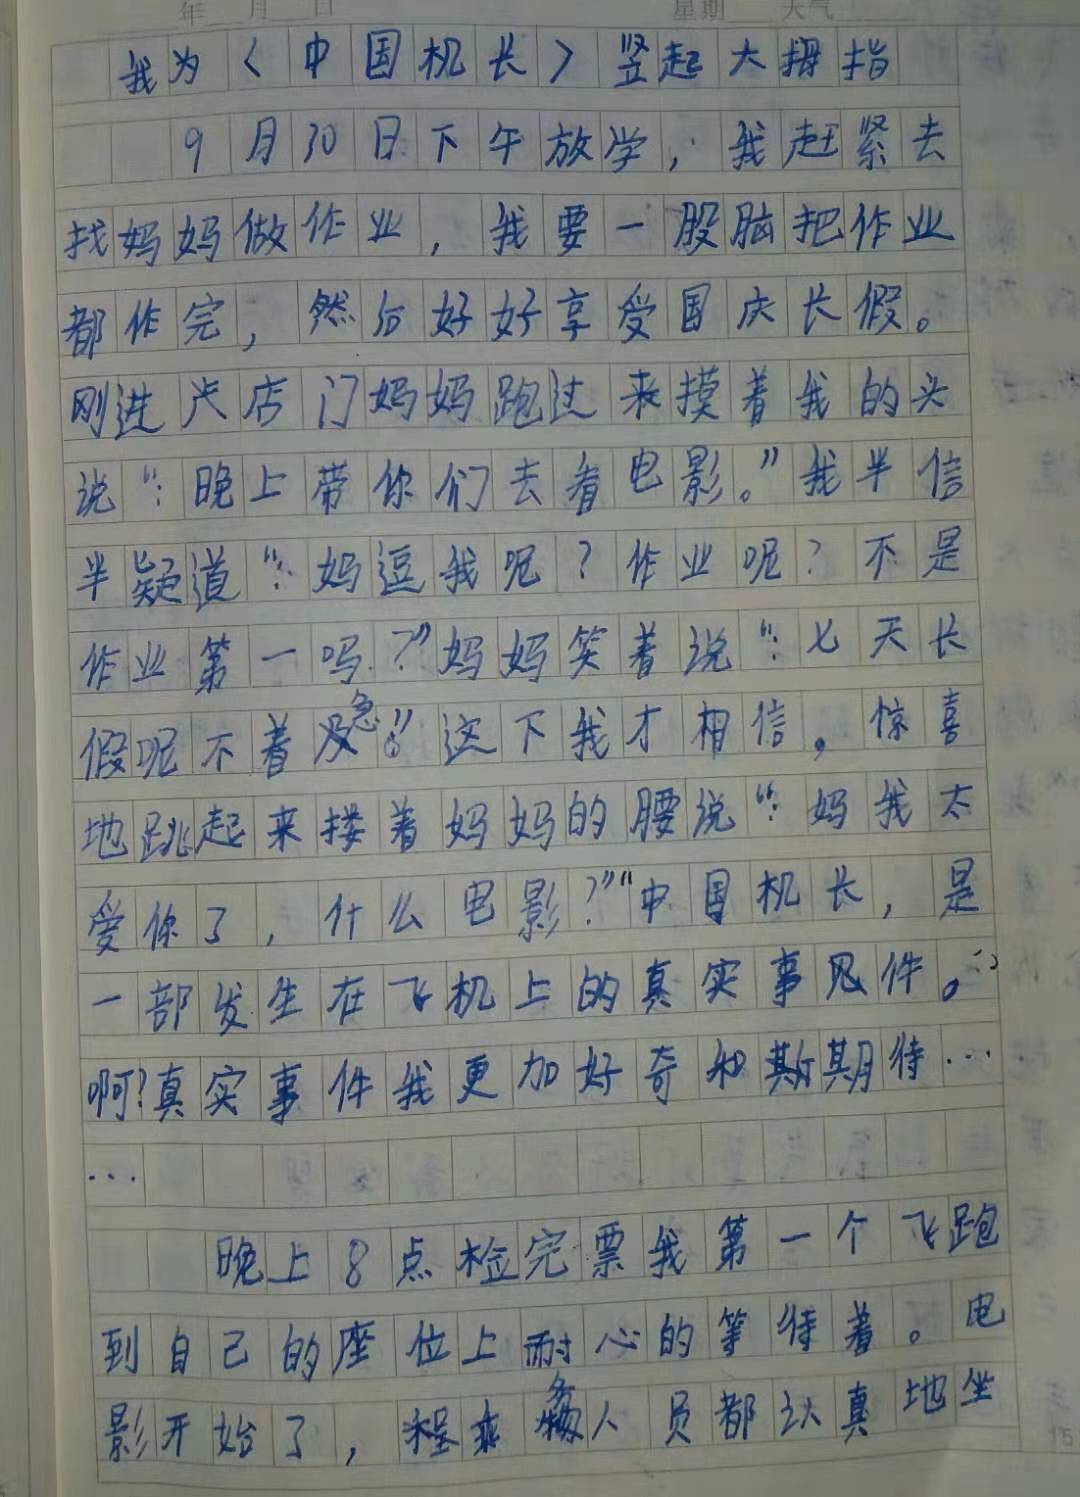 年 月 日 星期 天气
我为〈中国机长〉竖起大拇指
9月30日下午放学，我赶紧去
找妈妈做作业，我要一股脑把作业
都作完，然后好好享受国庆长假。
刚进店门妈妈跑过来摸着我的头
说“：晚上带你们去看电影。”我半信
半疑道“：妈逗我呢？作业呢？不是
作业第一吗？”妈妈笑着说“：七天长
假呢不着急！”这下我才相信。惊喜
地跳起来搂着妈妈的腰说“：妈我太
爱你了，什么电影？”“中国机长，是
一部发生在飞机上的真实事件。”
啊？真实事件我更加好奇和期待…
…
晚上8点检完票我第一个飞跑
到自己的座位上耐心的等待着。电
影开始了，乘务人员都认真地坐
15